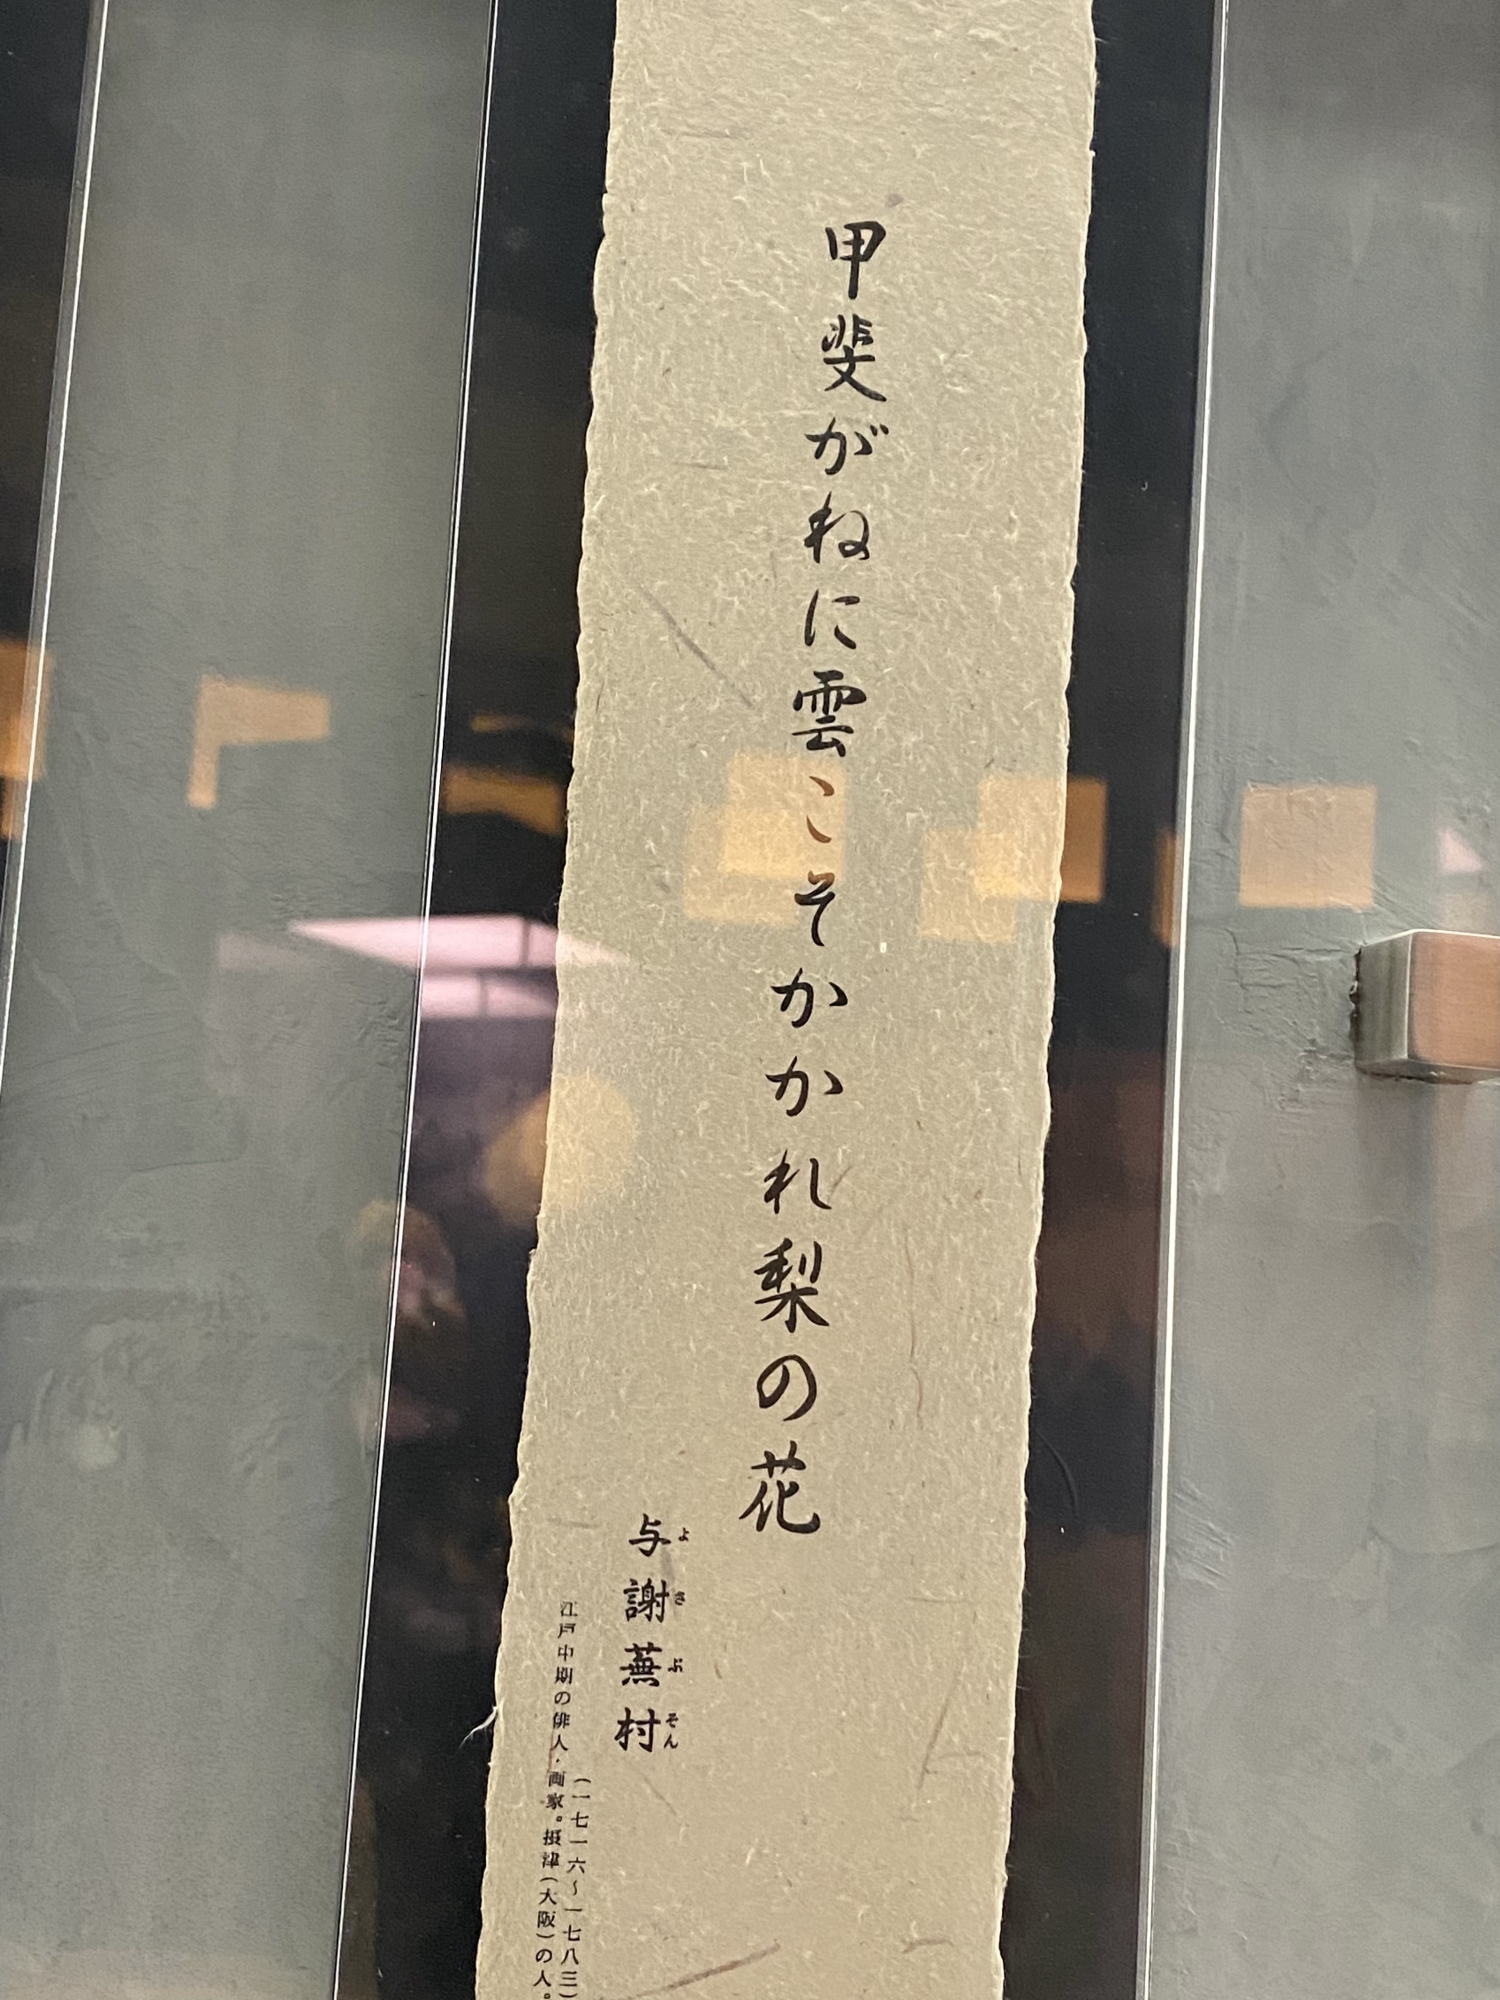 甲斐がねに雲こそかかれ梨の花
与謝蕪村
よさぶそん
(一七一六〜一七八三)
江戸中期の俳人・画家。摂津(大阪)の人。